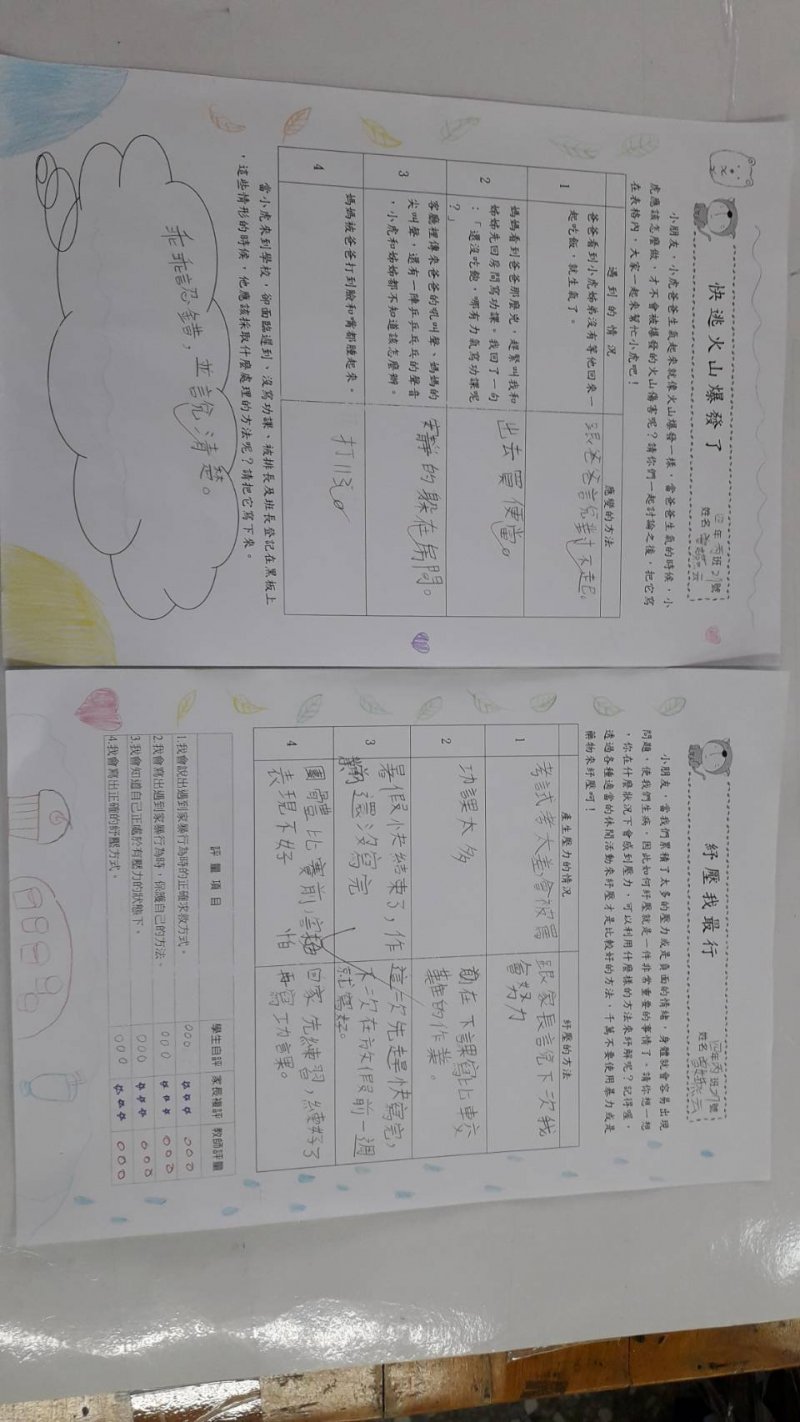 快逃火山爆發了
四年丙班21號
姓名
小朋友，小虎爸爸生氣起來就像火山爆發一樣，當爸爸生氣的時候，小
虎應該怎麼做，才不會被爆發的火山傷害呢？請你們一起討論之後，把它寫
在表格內，大家一起來幫忙小虎吧！
遇到的情況
應變的方法
1
爸爸看到小虎姊弟沒有等他回來一
起吃飯，就生氣了。
跟爸爸說對不起。
2
媽媽看到爸爸那麼兇，趕緊叫我和
姊姊先回房間寫功課。我回了一句
：「還沒吃飽，哪有力氣寫功課呢
？」
出去買便當。
3
客廳裡傳來爸爸的吼叫聲、媽媽的
尖叫聲，還有一陣乒乒乓乓的聲音
，小虎和姊姊都不知道該怎麼辦。
安靜的躲在房間。
4
媽媽被爸爸打到臉和嘴都腫起來。
打113。
當小虎來到學校，卻面臨遲到、沒寫功課、被排長及班長登記在黑板上
，這些情形的時候，他應該採取什麼處理的方法呢？請把它寫下來。
乖乖認錯，並說清楚。
紓壓我最行
四年丙班21號
姓名
小朋友，當我們累積了太多的壓力或是負面的情緒，身體就會容易出現
問題，使我們生病，因此如何紓壓就是一件非常重要的事情了。請你想一想
，你在什麼狀況下會感到壓力，可以利用什麼樣的方法來紓解呢？記得喔，
透過各種適當的休閒活動來紓壓才是比較好的方法，千萬不要使用暴力或是
藥物來紓壓呵！
產生壓力的情況
紓壓的方法
1
考試考太差會被罵
跟家長說下次我
會努力
2
功課太多
在下課寫比較
難的作業。
3
暑假快結束了，作
業還沒寫完
這次先趕快寫完，
下次在放假前一週
就寫好。
4
團體比賽前，怕
表現不好
回家先練習，練好了
再寫功課。
評量項目
學生自評
家長複評
教師評量
1.我會說出遇到家暴行為時的正確求救方式。
○○○
☆☆☆
○○○
2.我會寫出遇到家暴行為時，保護自己的方法。
○○○
☆☆☆
○○○
3.我會知道自己正處於有壓力的狀態下。
○○○
☆☆☆
○○○
4.我會寫出正確的紓壓方式。
○○○
☆☆☆
○○○